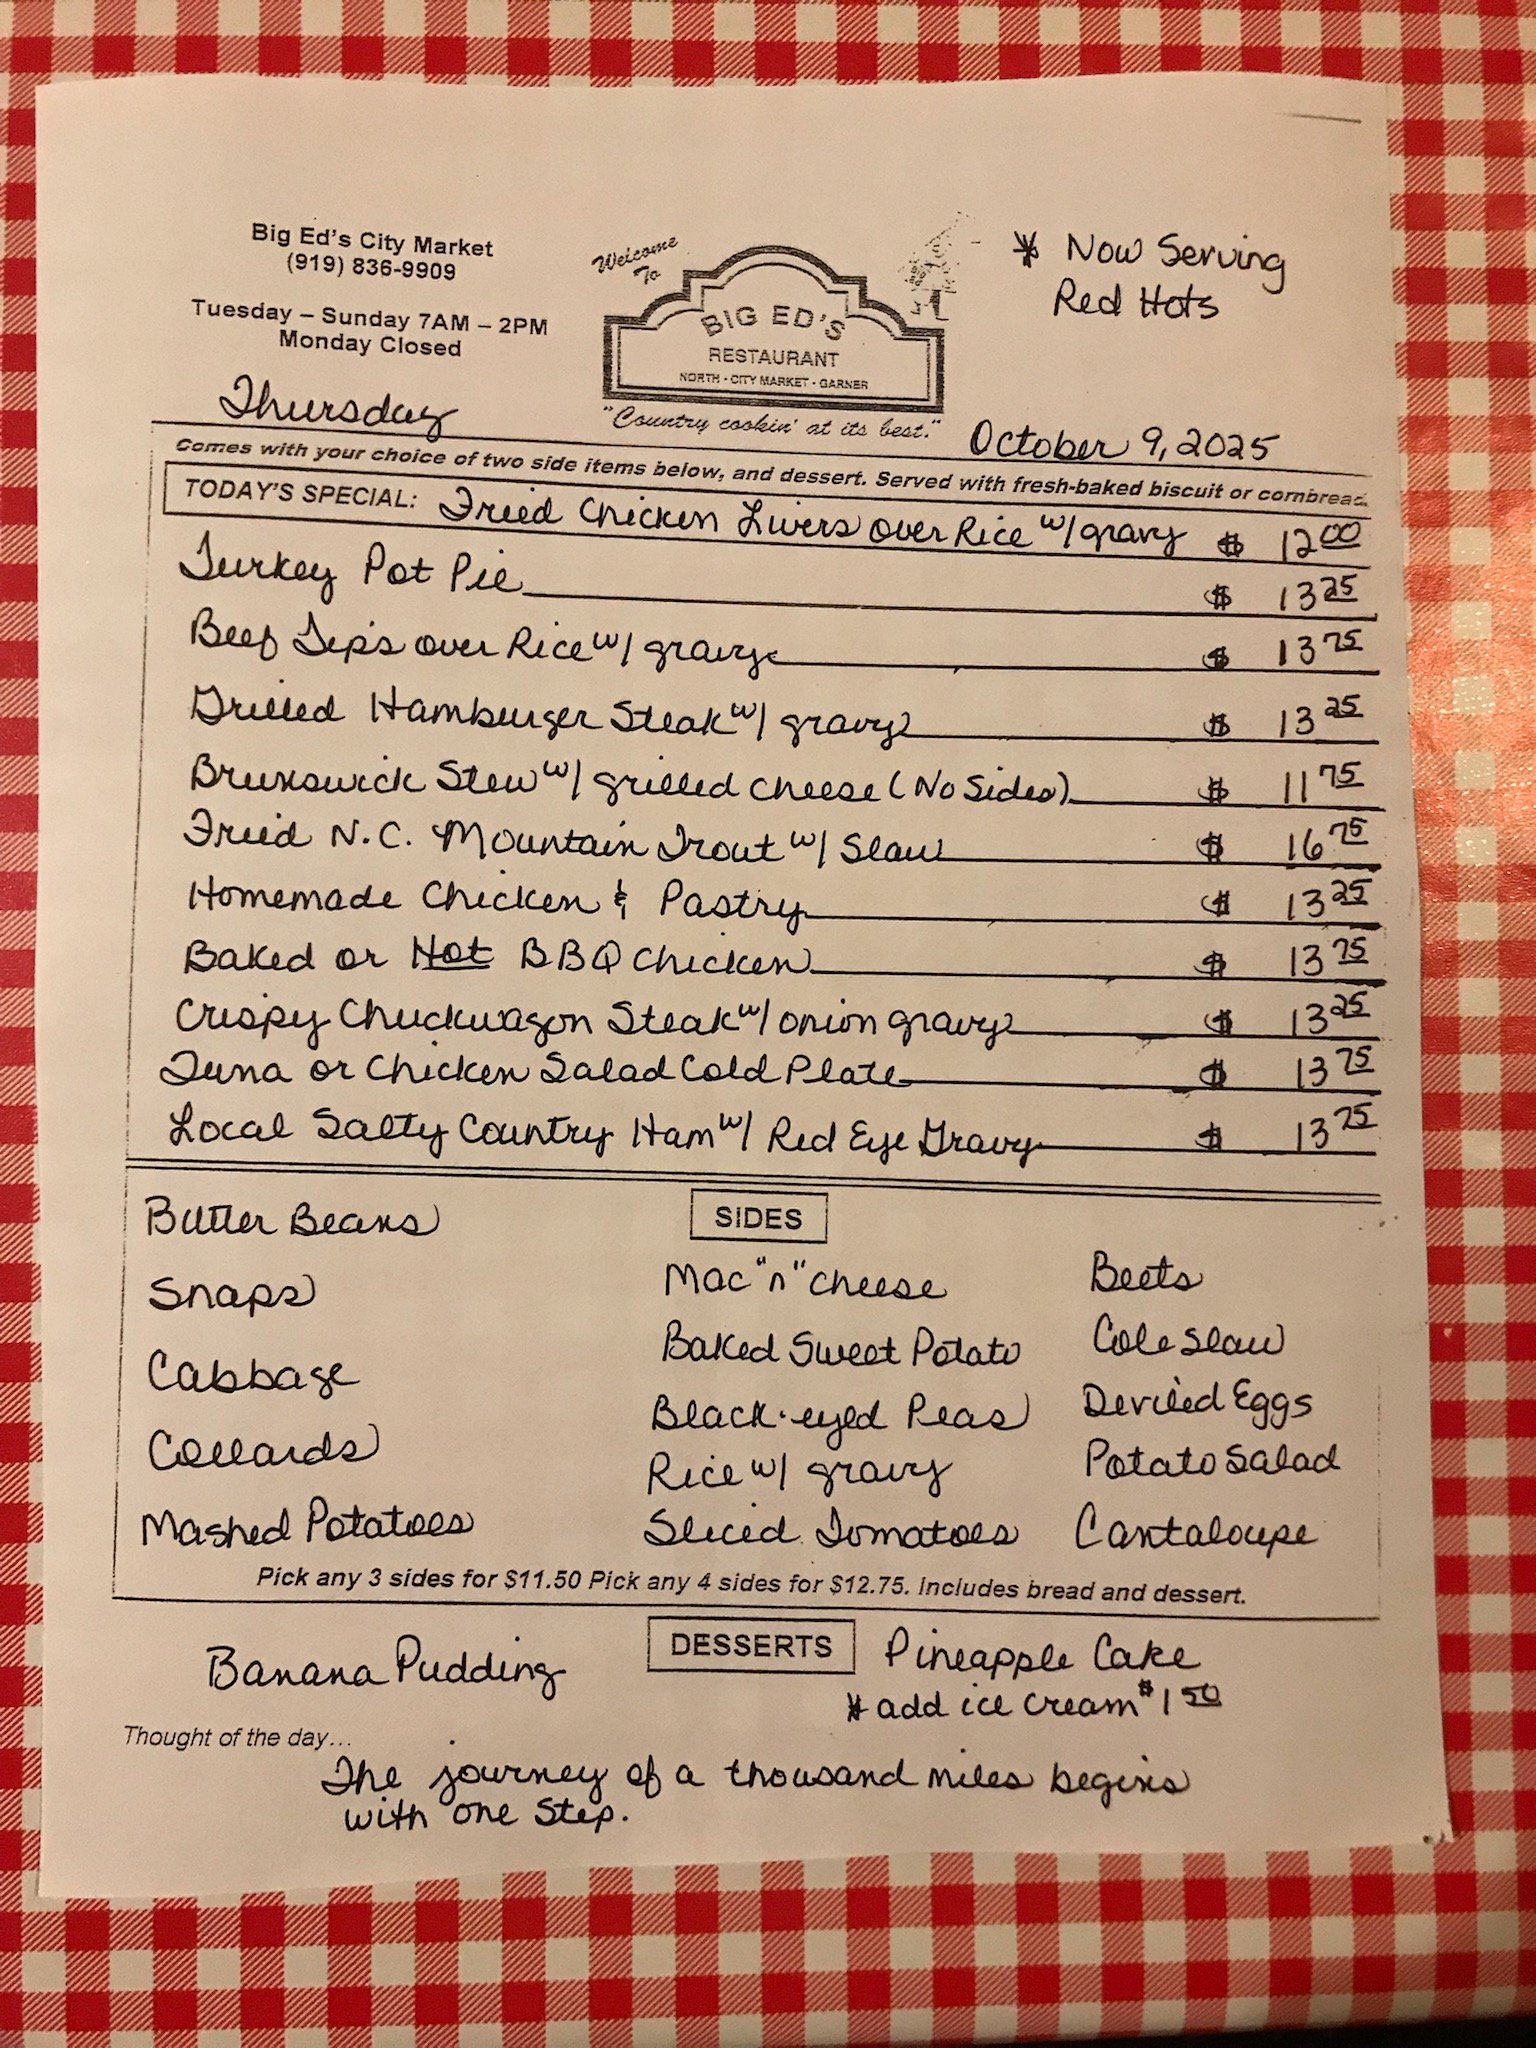 Big Ed's City Market
(919) 836-9909
Tuesday – Sunday 7AM – 2PM
Monday Closed
Welcome
To
BIG ED'S
RESTAURANT
NORTH · CITY MARKET · GARNER
"Country cookin' at its best."
* Now Serving
Red Hots
Thursday
October 9, 2025
Comes with your choice of two side items below, and dessert. Served with fresh-baked biscuit or cornbread.
TODAY'S SPECIAL: Fried Chicken Livers over Rice w/ gravy $ 12 00
Turkey Pot Pie $ 13 25
Beef Tips over Rice w/ gravy $ 13 75
Grilled Hamburger Steak w/ gravy $ 13 25
Brunswick Stew w/ grilled cheese (No Sides) $ 11 75
Fried N.C. Mountain Trout w/ Slaw $ 16 75
Homemade Chicken & Pastry $ 13 25
Baked or Hot BBQ Chicken $ 13 75
Crispy Chuckwagon Steak w/ onion gravy $ 13 25
Tuna or Chicken Salad Cold Plate $ 13 75
Local Salty Country Ham w/ Red Eye Gravy $ 13 75
SIDES
Butter Beans
Snaps
Cabbage
Collards
Mashed Potatoes
Mac "n" cheese
Baked Sweet Potato
Black-eyed Peas
Rice w/ gravy
Sliced Tomatoes
Beets
Cole Slaw
Deviled Eggs
Potato Salad
Cantaloupe
Pick any 3 sides for $11.50 Pick any 4 sides for $12.75. Includes bread and dessert.
DESSERTS
Banana Pudding
Pineapple Cake
* add ice cream $1 50
Thought of the day…
The journey of a thousand miles begins
with one step.